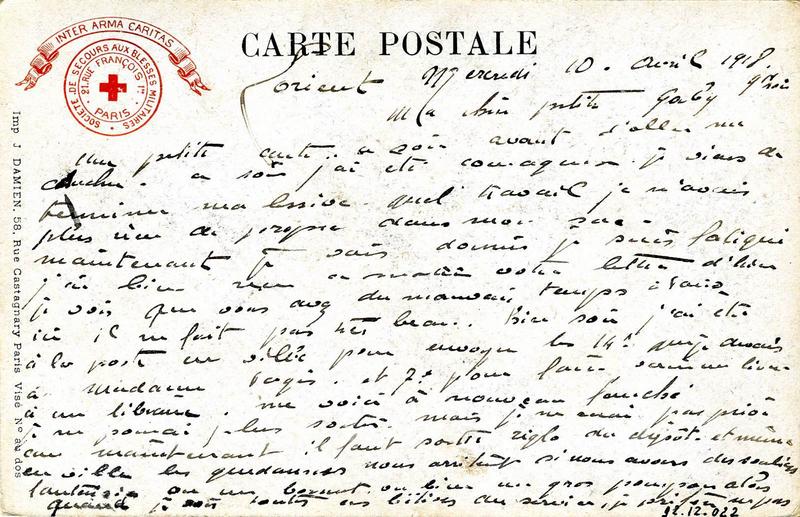 INTER ARMA CARITAS
SOCIÉTÉ DE SECOURS AUX BLESSÉS MILITAIRES
21, RUE FRANÇOIS Ier
PARIS
CARTE POSTALE
Lorient Mercredi 10 Avril 1918.
Ma chère petite Gaby
Une petite carte ce soir avant d'aller me
coucher. ce soir j'ai été je viens de
terminer ma lessive. quel travail je n'avais
plus rien de propre dans mon sac.
maintenant je vais dormir je suis fatigué
j'ai bien reçu ce matin votre lettre d'hier
je vois que vous avez du mauvais temps
ici il ne fait pas très beau. Hier soir j'ai été
à la poste en ville pour envoyer les 14f que je devais
à madame Pagès. et 7f pour faire
à un libraire. me voici à nouveau fauché
je ne pourrai plus sortir. mais je n'en ai pas
maintenant il faut sortir du dépôt. et même
en ville les gendarmes nous arrêtent si nous avons des souliers
fantaisie ou un ou bien un gros
quand je vois toutes ces bêtises du service, je préfère ne pas
92.12.022
Imp J DAMIEN, 58, Rue Castagnary Paris Visé No au dos